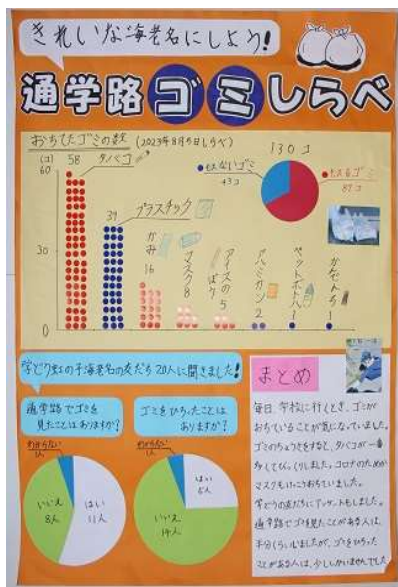 きれいな海老名にしよう!
通学路ゴミしらべ
おちてたゴミの数 (2023年8月5日しらべ)
(コ)
60
30
0
58 タバコ
39 プラスチック
かみ 16
マスク 8
アイスのぼう 5
アルミカン 2
ペットボトル 1
かなでんち 1
130コ
もえないゴミ
43コ
もえるゴミ
87コ
学どう虹の子海老名の友だち20人に聞きました!
通学路でゴミを
見たことはありますか?
わからない
1人
いいえ
8人
はい
11人
ゴミをひろったことは
ありますか?
わからない
1人
はい
5人
いいえ
14人
まとめ
毎日、学校に行くとき、ゴミが
おちていることが気になっていました。
ゴミのちょうさをすると、タバコが一番
多くてびっくりしました。コロナのためか
マスクもけっこうおちていました。
学どうの友だちにアンケートもしました。
通学路でゴミを見たことがある人は、
半分くらいいましたが、ゴミをひろった
ことがある人は、少ししかいませんでした